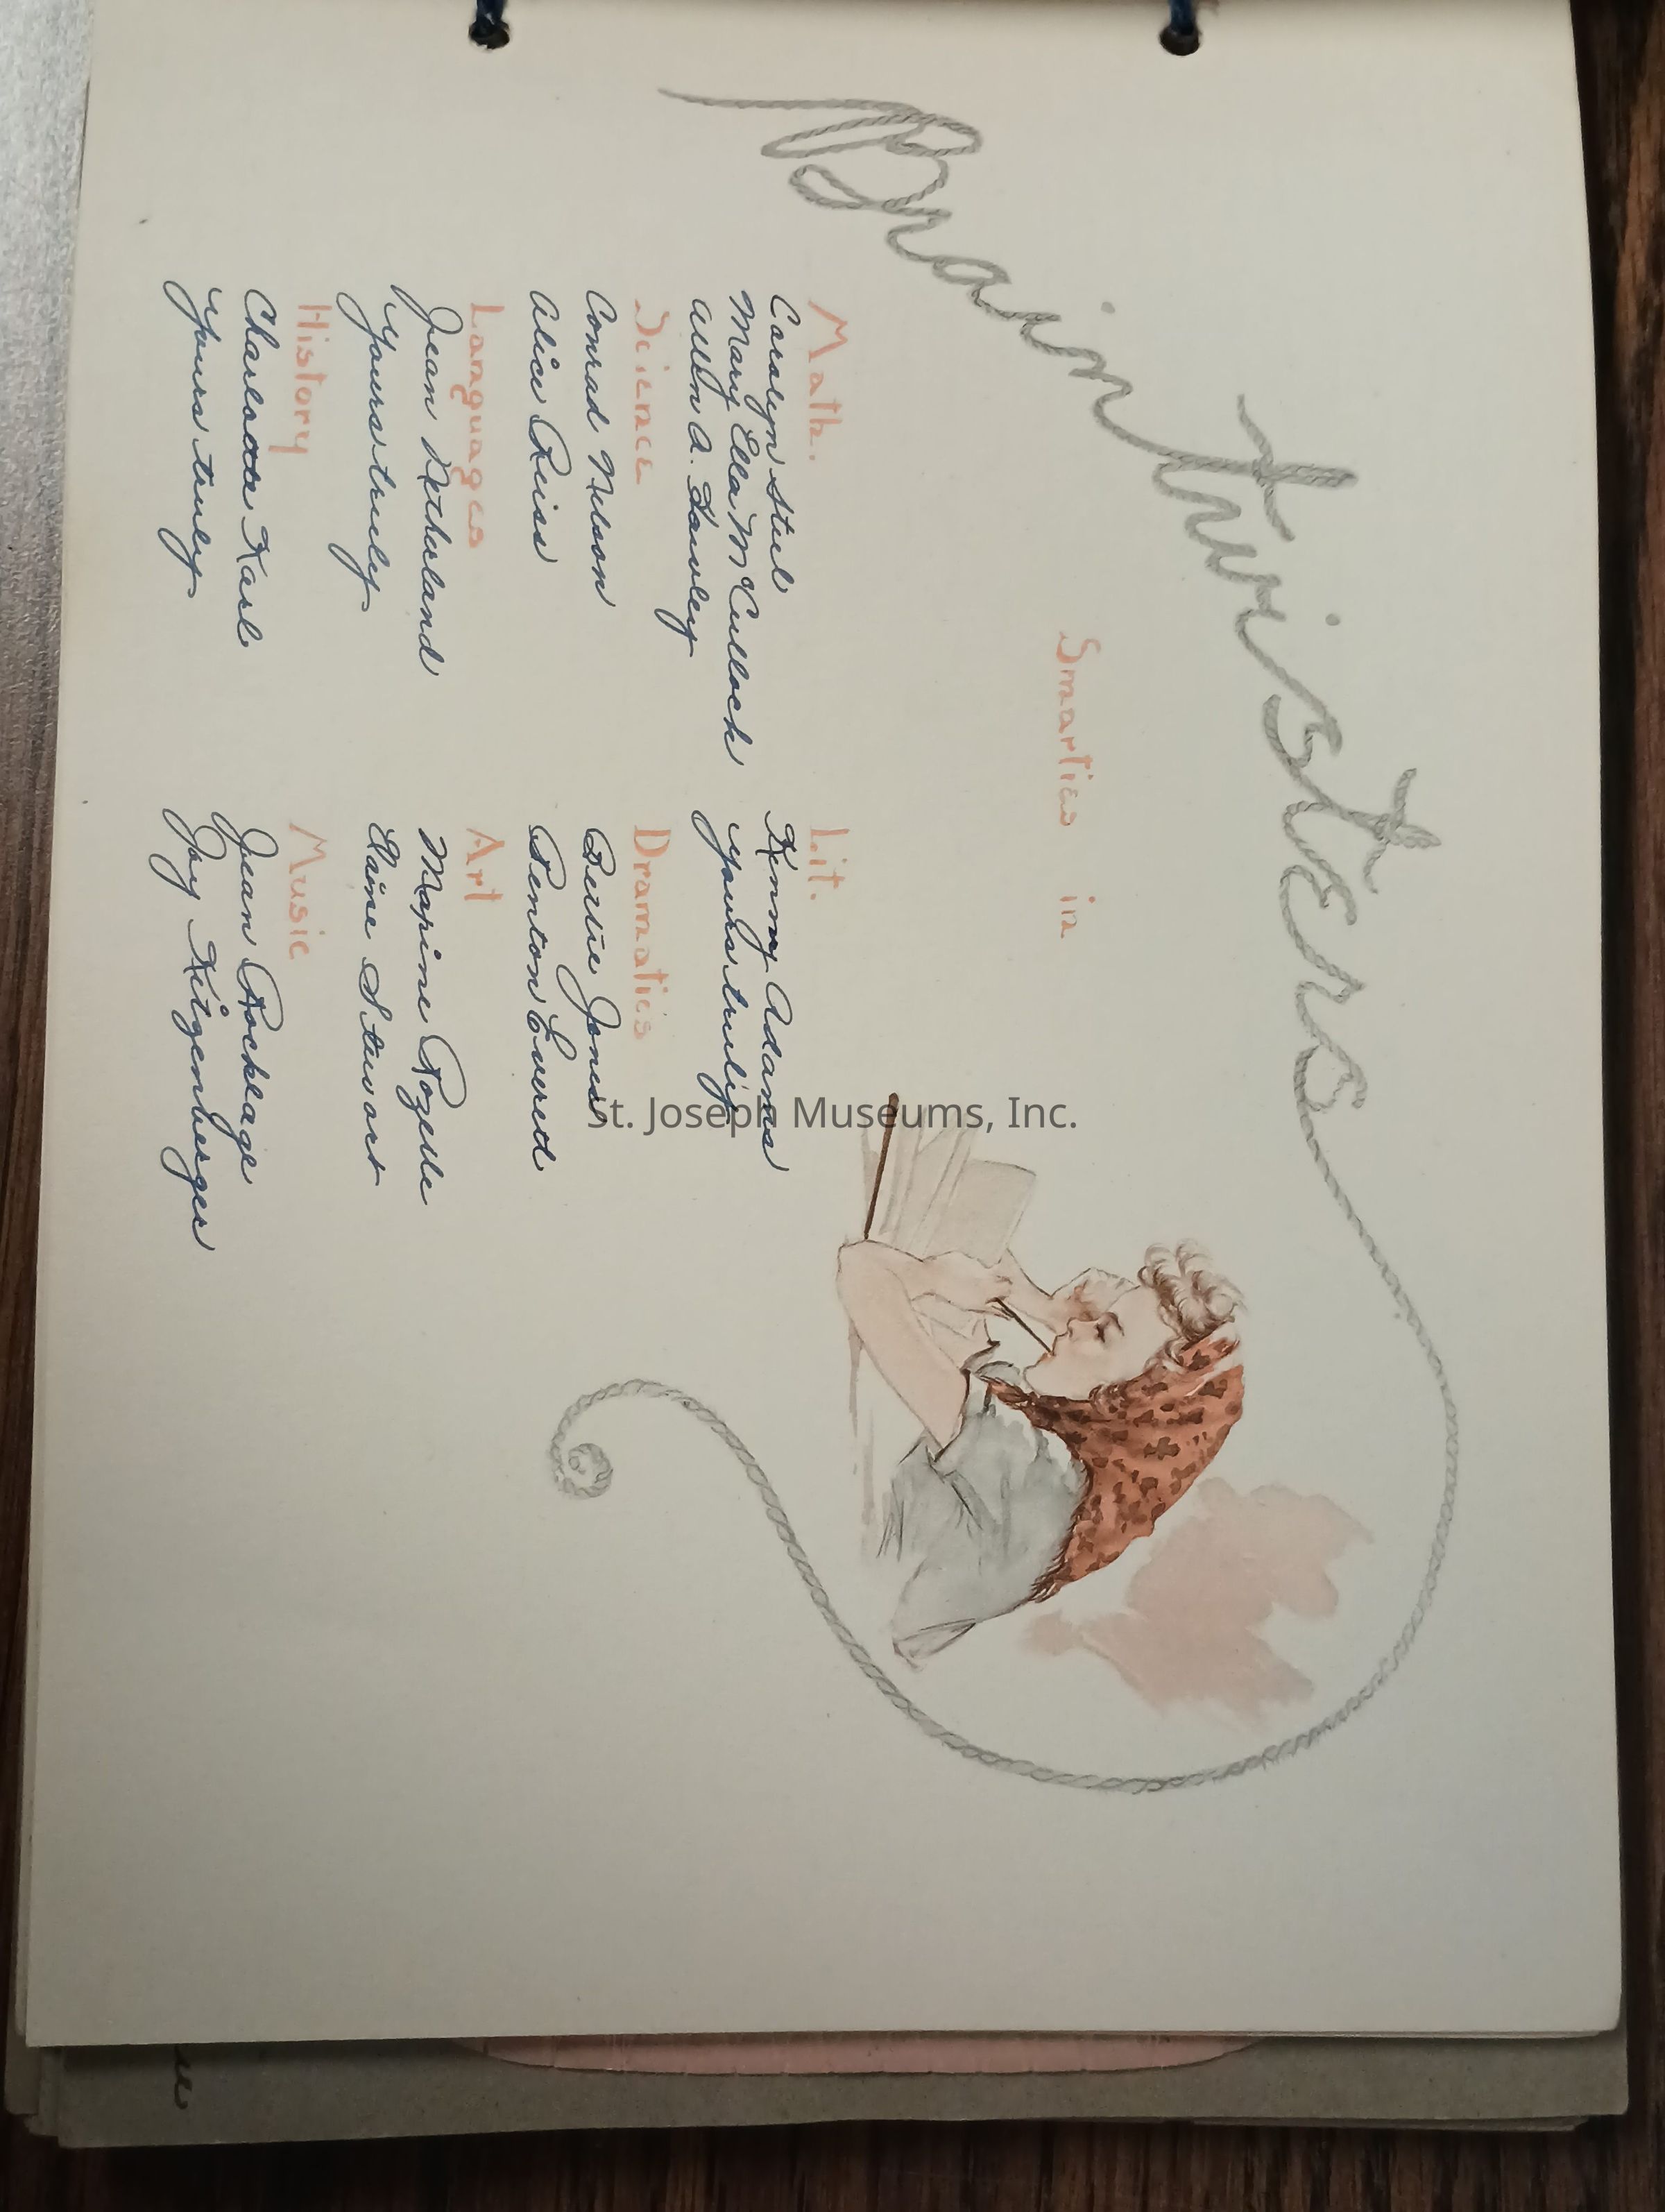 Brain twisters
Smarties in
Math.
Carolyn Stiel
Mary Ella McCullock
Allen A. Hawley
Science
Conrad Nelson
Alice Reiss
Languages
Jean Netherland
Yours truly
History
Charlotte Karl
Yours truly
Lit.
Kenny Adams
Yours truly
Dramatics
Bertie Jones
Benton Everett
Art
Maxine Rozelle
Elaine Stewart
Music
Jean Rocklage
Joy Kitzenberger
St. Joseph Museums, Inc.